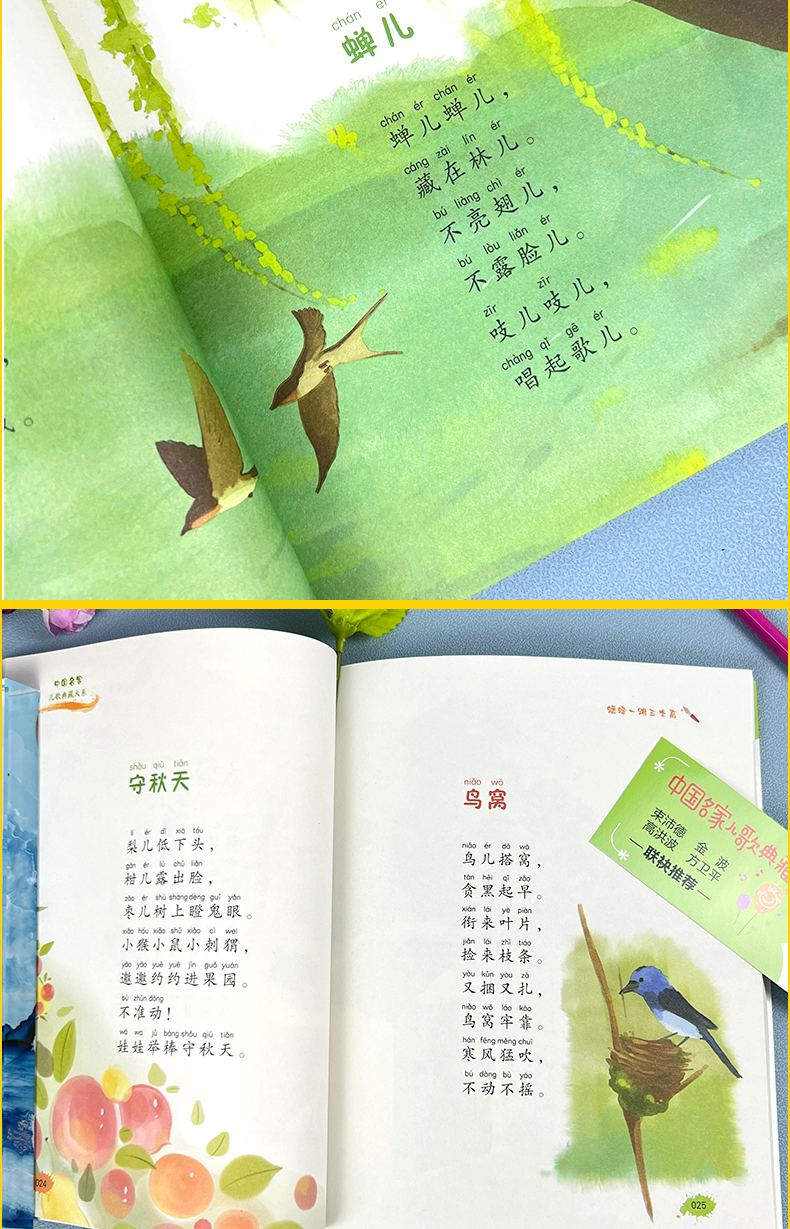 chán ér
蝉儿
chán ér chán ér
蝉儿蝉儿，
cáng zài lín ér
藏在林儿。
bú liàng chì ér
不亮翅儿，
bú lòu liǎn ér
不露脸儿。
zīr zīr
吱儿吱儿，
chàng qǐ gē ér
唱起歌儿。
。
中国名家
儿歌典藏大系
shǒu qiū tiān
守秋天
lí ér dī xià tóu
梨儿低下头，
gān ér lù chū liǎn
柑儿露出脸，
zǎo ér shù shàng dèng guǐ yǎn
枣儿树上瞪鬼眼。
xiǎo hóu xiǎo shǔ xiǎo cì wei
小猴小鼠小刺猬，
yāo yāo yuē yuē jìn guǒ yuán
邀邀约约进果园。
bù zhǔn dòng
不准动！
wá wa jǔ bàng shǒu qiū tiān
娃娃举棒守秋天。
024
蟋蟀一蹦三尺高
niǎo wō
鸟窝
niǎo ér dā wō
鸟儿搭窝，
tān hēi qǐ zǎo
贪黑起早。
xián lái yè piàn
衔来叶片，
jiǎn lái zhī tiáo
捡来枝条。
yòu kǔn yòu zā
又捆又扎，
niǎo wō láo kào
鸟窝牢靠。
hán fēng měng chuī
寒风猛吹，
bú dòng bù yáo
不动不摇。
025
中国名家儿歌典藏
束沛德 金波
高洪波 方卫平
—联袂推荐—